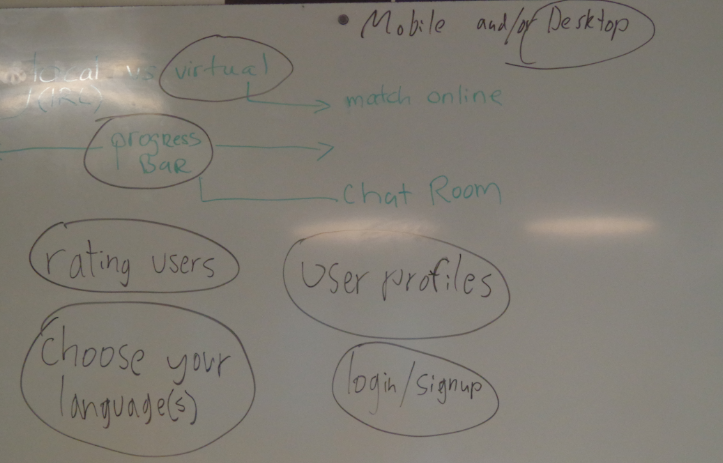 • Mobile and/or Desktop
local vs virtual
(IRL)
match online
progress
Bar
Chat Room
rating users
User profiles
Choose your
language(s)
login/signup